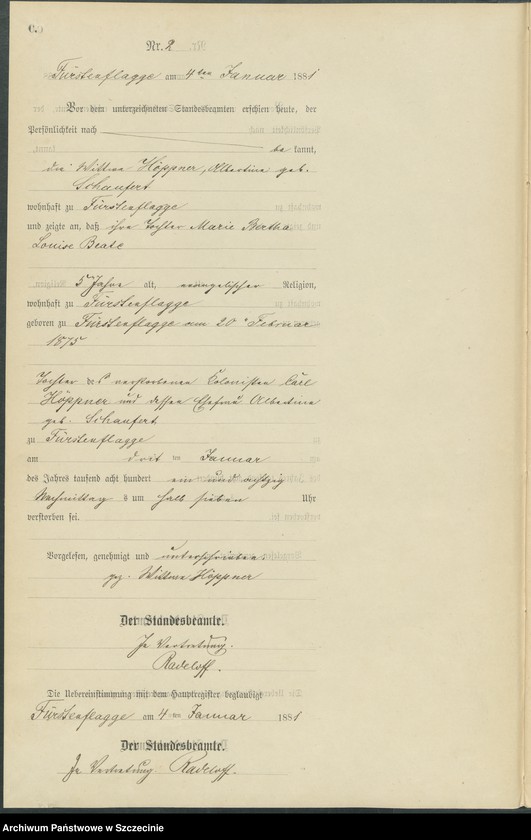 Nr. 2
Fürstenflagge am 4ten Januar 1881
Vor dem unterzeichneten Standesbeamten erschien heute, der
Persönlichkeit nach
be kannt,
die Wittwe Höppner, Albertine geb.
Schaufert
wohnhaft zu Fürstenflagge
und zeigte an, daß ihre Tochter Marie Bertha
Louise Beate
5 Jahre alt, evangelischer Religion,
wohnhaft zu Fürstenflagge
geboren zu Fürstenflagge am 20n Februar
1875
Tochter des verstorbenen Colonisten Carl
Höppner und dessen Ehefrau Albertine
geb. Schaufert
zu Fürstenflagge
am dritten Januar
des Jahres tausend acht hundert ein und achtzig
Nachmittags um halb sieben Uhr
verstorben sei.
Vorgelesen, genehmigt und unterschrieben.
gez. Wittwe Höppner
Der Standesbeamte.
In Vertretung.
Radeloff.
Die Uebereinstimmung mit dem Hauptregister beglaubigt
Fürstenflagge am 4ten Januar 1881
Der Standesbeamte.
In Vertretung Radeloff.
Archiwum Państwowe w Szczecinie